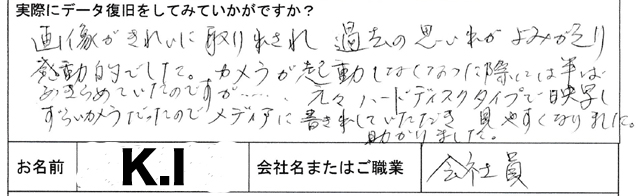 実際にデータ復旧をしてみていかがですか？
画像がきれいに取り出され 過去の思い出がよみがえり
感動的でした。カメラが起動しなくなった際には半ば
あきらめていたのですが…… 元々ハードディスクタイプで映写し
ずらいカメラだったのでメディアに書き出していただき 見やすくなりました。
助かりました。
お名前 K.I 会社名またはご職業 会社員